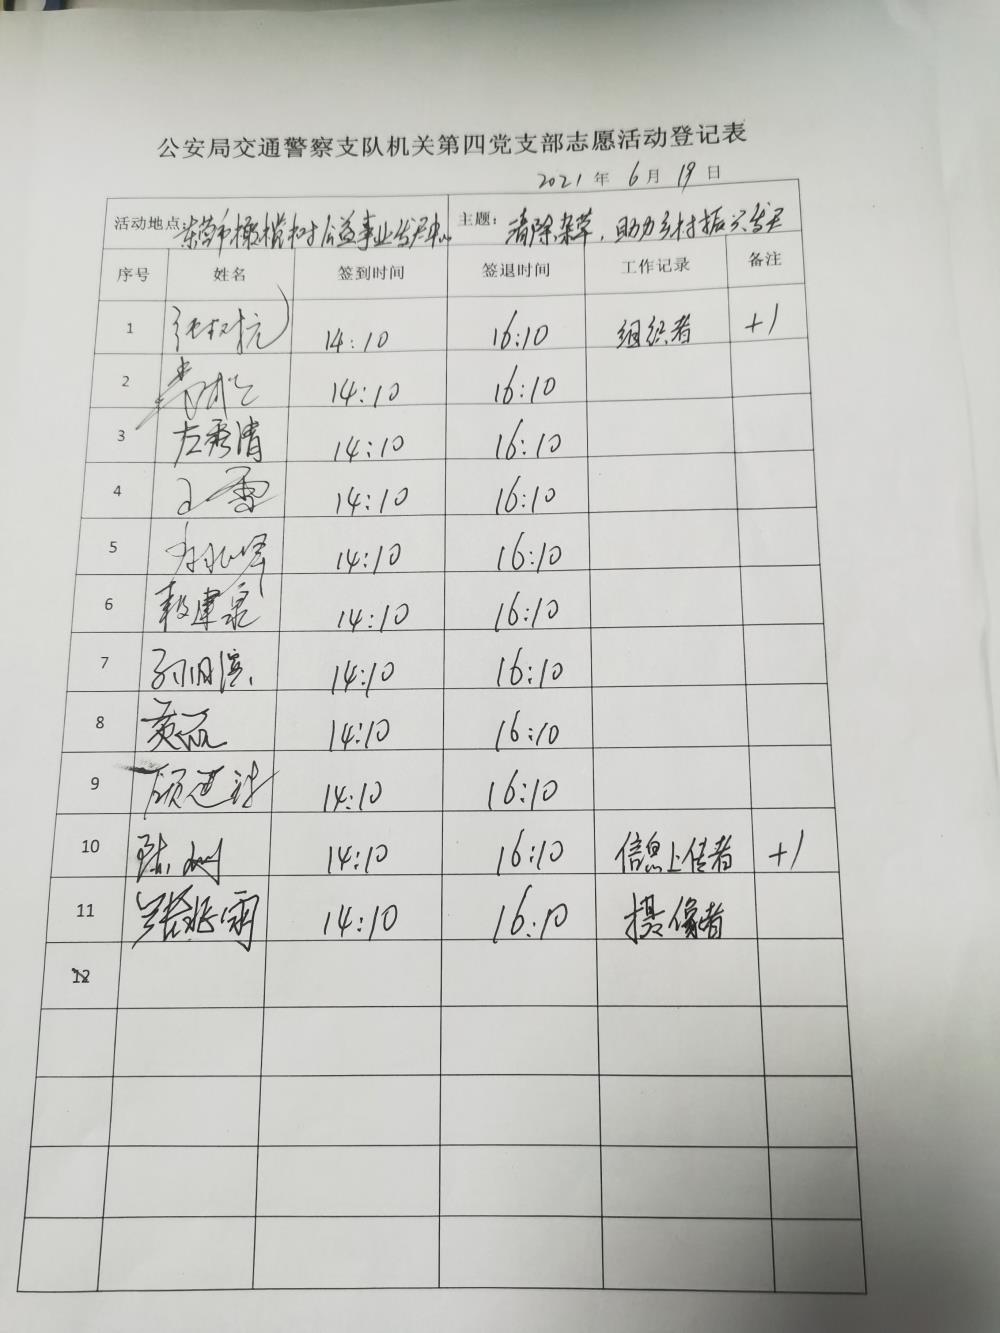 公安局交通警察支队机关第四党支部志愿活动登记表
2021 年 6 月 19 日
活动地点: 东营市橄榄树公益事业发展中心 主题: 清除杂草,助力乡村振兴发展
序号 姓名 签到时间 签退时间 工作记录 备注
1 14:10 16:10 组织者 +1
2 14:10 16:10
3 左秀清 14:10 16:10
4 王雪 14:10 16:10
5 14:10 16:10
6 14:10 16:10
7 14:10 16:10
8 14:10 16:10
9 14:10 16:10
10 14:10 16:10 信息上传者 +1
11 14:10 16:10 摄像者
12